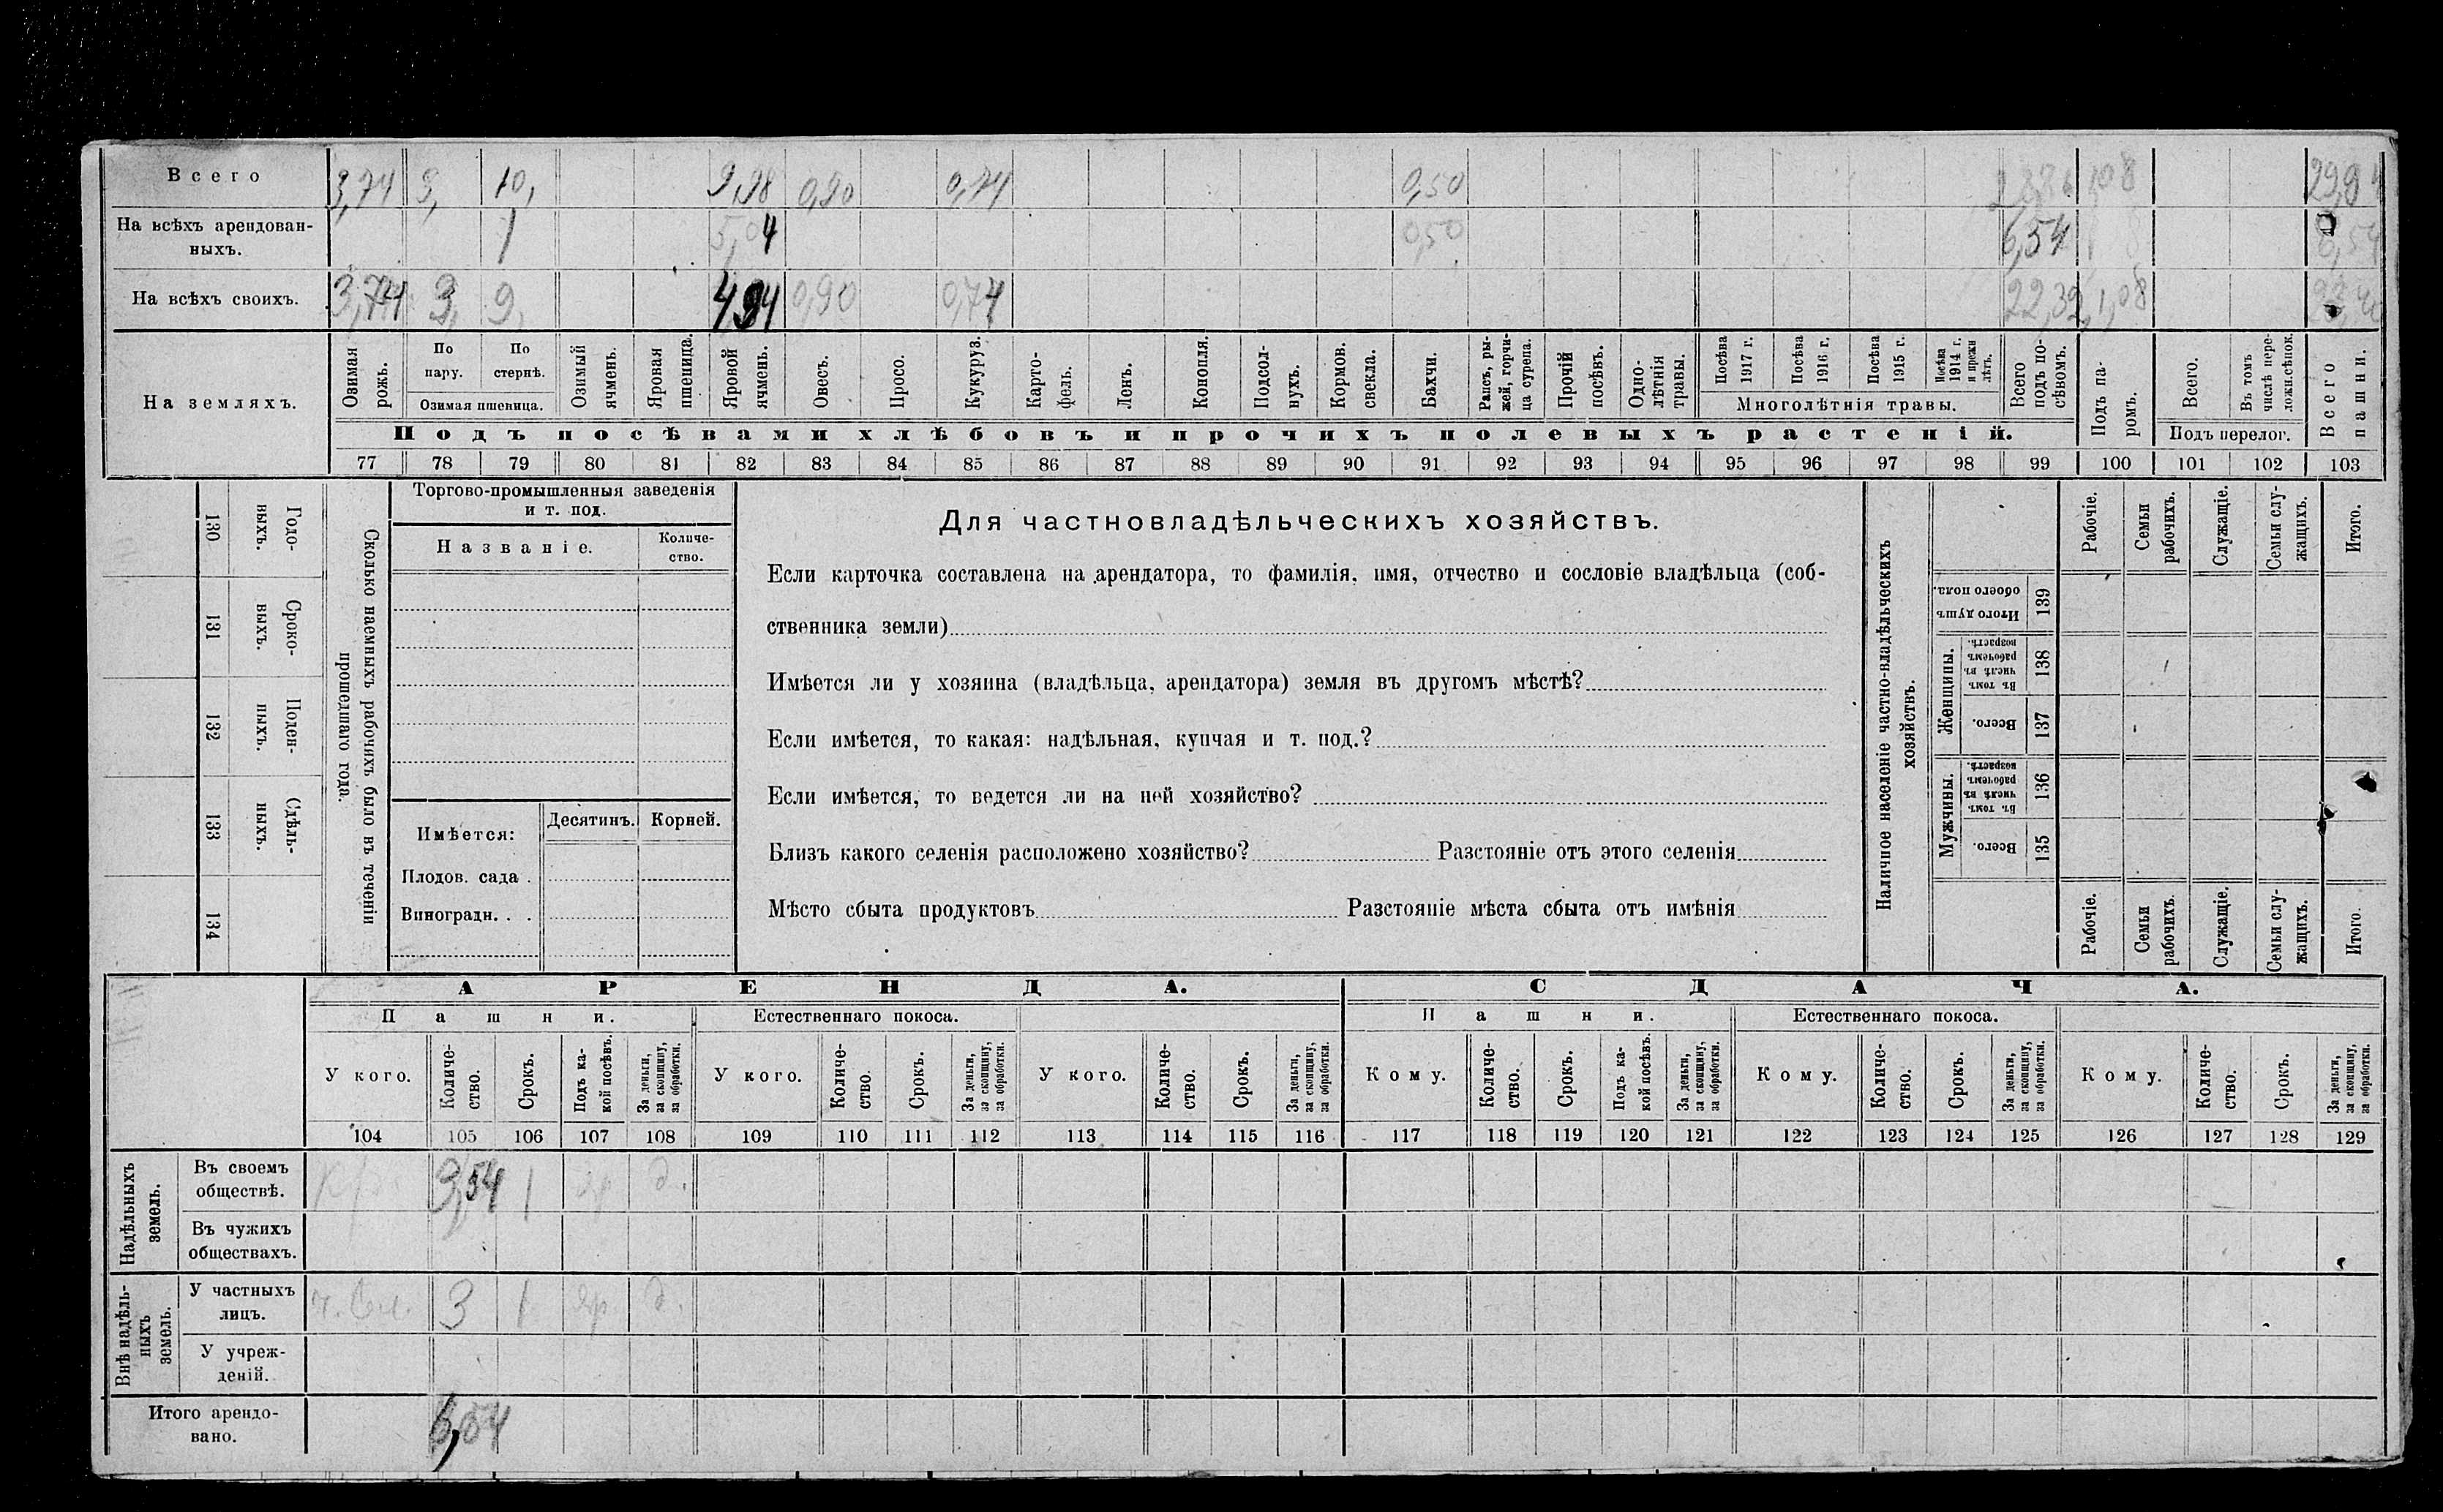 Всего 3,74 3, 10, 9,98 0,90 0,74 0,50 28,86 1,08 29,94
На всѣхъ арендован-
ныхъ. 1 5,04 0,50 6,54 6,54
На всѣхъ своихъ. 3,74 3, 9, 4,94 0,90 0,74 22,32 1,08 23,40
На земляхъ.
Озимая рожь.
По пару.
По стернѣ.
Озимая пшеница.
Озимый ячмень.
Яровая пшеница.
Яровой ячмень.
Овесъ.
Просо.
Кукуруз.
Карто-
фель.
Ленъ.
Конопля.
Подсол-
нухъ.
Кормов.
свекла.
Бахчи.
Рапсъ, ры-
жей, горчи-
ца сурепа.
Прочій
посѣвъ.
Одно-
лѣтнія
травы.
Посѣва
1917 г.
Посѣва
1916 г.
Посѣва
1915 г.
Посѣва
1914 г.
и прежн
лѣтъ.
Многолѣтнія травы.
Всего
подъ по-
сѣвомъ.
Подъ па-
ромъ.
Всего.
Въ томъ
числѣ пере-
ложн.сѣнок.
Подъ перелог.
Всего
пашни.
Подъ посѣвами хлѣбовъ и прочихъ полевыхъ растеній.
77 78 79 80 81 82 83 84 85 86 87 88 89 90 91 92 93 94 95 96 97 98 99 100 101 102 103
130 Годо-
ныхъ.
131 Сроко-
выхъ.
132 Поден-
ныхъ.
133 Сдѣль-
ныхъ.
134
Сколько наемныхъ рабочихъ было въ теченіи
прошедшаго года.
Торгово-промышленныя заведенія
и т. под.
Названіе.
Количе-
ство.
Имѣется:
Десятинъ.
Корней.
Плодов. сада .
Виноградн. . .
Для частновладѣльческихъ хозяйствъ.
Если карточка составлена на арендатора, то фамилія, имя, отчество и сословіе владѣльца (соб-
ственника земли)
Имѣется ли у хозяина (владѣльца, арендатора) земля въ другомъ мѣстѣ?
Если имѣется, то какая: надѣльная, купчая и т. под.?
Если имѣется, то ведется ли на ней хозяйство?
Близъ какого селенія расположено хозяйство? Разстояніе отъ этого селенія
Мѣсто сбыта продуктовъ Разстояніе мѣста сбыта отъ имѣнія
Наличное населеніе частно-владѣльческихъ
хозяйствъ.
Рабочіе.
Семьи
рабочихъ.
Служащіе.
Семьи слу-
жащихъ.
Итого.
Итого душъ
обоего пола.
139
Женщины.
Въ томъ
числѣ въ
рабочемъ
возрастѣ.
138
Всего.
137
Мужчины.
Въ томъ
числѣ въ
рабочемъ
возрастѣ.
136
Всего.
135
Рабочіе.
Семьи
рабочихъ.
Служащіе.
Семьи слу-
жащихъ.
Итого.
АРЕНДА. СДАЧА.
Пашни. Естественнаго покоса. Пашни. Естественнаго покоса.
У кого.
Количе-
ство.
Срокъ.
Подъ ка-
кой посѣвъ.
За деньги,
за скопщину,
за обработки.
У кого.
Количе-
ство.
Срокъ.
За деньги,
за скопщину,
за обработки.
У кого.
Количе-
ство.
Срокъ.
За деньги,
за скопщину,
за обработки.
Кому.
Количе-
ство.
Срокъ.
Подъ ка-
кой посѣвъ.
За деньги,
за скопщину,
за обработки.
Кому.
Количе-
ство.
Срокъ.
За деньги,
за скопщину,
за обработки.
Кому.
Количе-
ство.
Срокъ.
За деньги,
за скопщину,
за обработки.
104 105 106 107 108 109 110 111 112 113 114 115 116 117 118 119 120 121 122 123 124 125 126 127 128 129
Надѣльныхъ
земель.
Въ своемъ
обществѣ. 3,54 1 яр д.
Въ чужихъ
обществахъ.
Внѣ надѣль-
ныхъ
земель.
У частныхъ
лицъ. ч. вл. 3 1 яр. д.
У учреж-
деній.
Итого арендо-
вано. 6,54